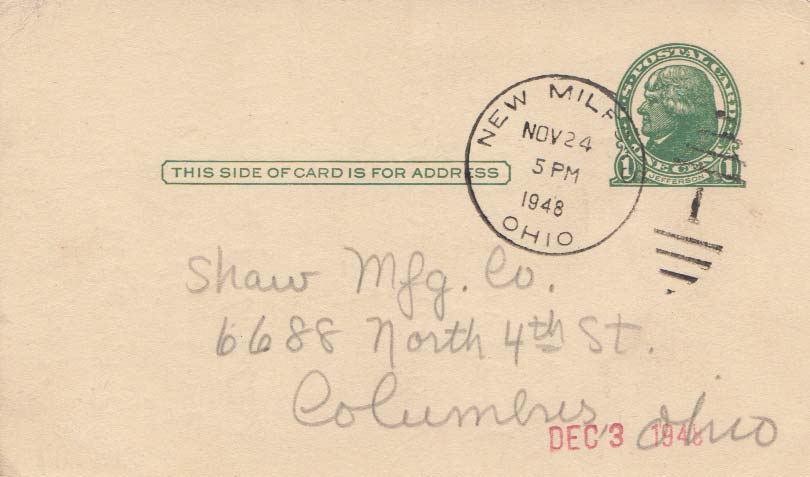 U.S. POSTAL CARD
ONE CENT
1 JEFFERSON 1
NEW MILF
NOV 24
5 PM
1948
OHIO
THIS SIDE OF CARD IS FOR ADDRESS
Shaw Mfg. Co.
6688 North 4th St.
Columbus, Ohio
DEC 3 1948